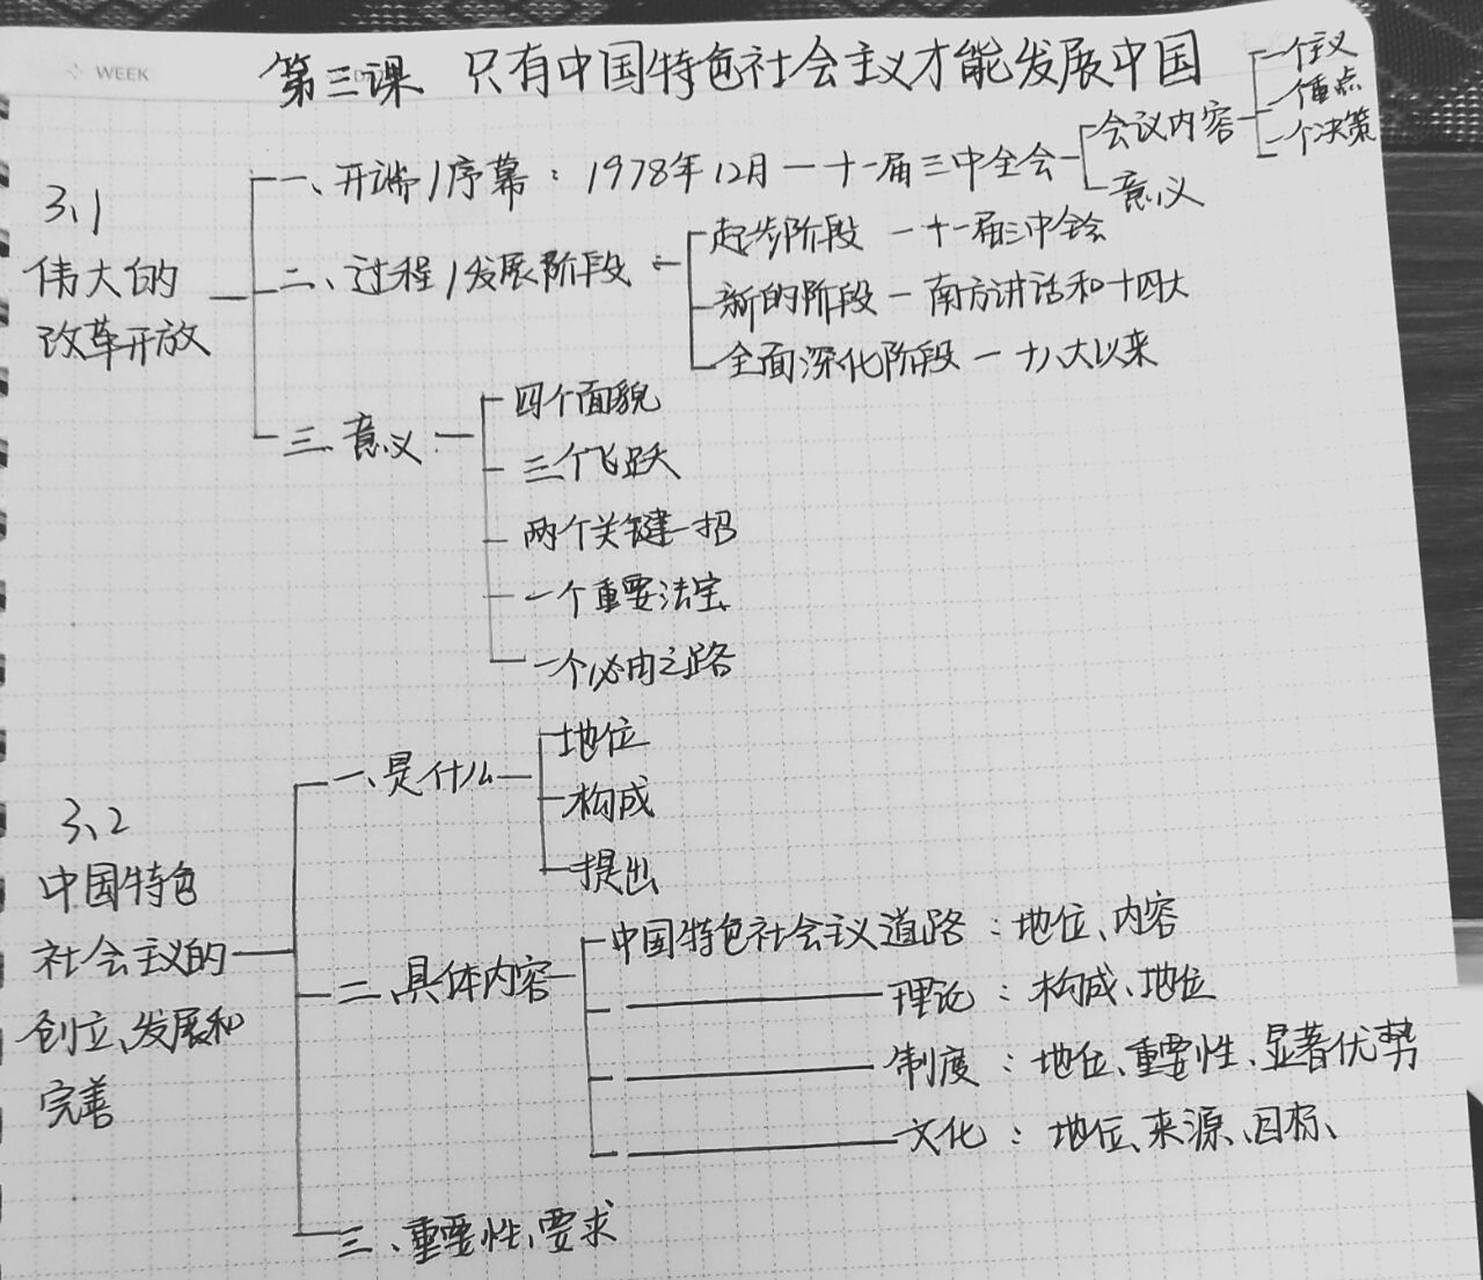 WEEK
第三课 只有中国特色社会主义才能发展中国
3、1
伟大的
改革开放
一、开端/序幕：1978年12月一十一届三中全会
会议内容
一个主义
一个重点
一个决策
意义
二、过程/发展阶段
起步阶段 — 十一届三中全会
新的阶段 — 南方讲话和十四大
全面深化阶段 — 十八大以来
三、意义
四个面貌
三个飞跃
两个关键一招
一个重要法宝
一个必由之路
3、2
中国特色
社会主义的
创立、发展和
完善
一、是什么
地位
构成
提出
二、具体内容
中国特色社会主义道路：地位、内容
理论：构成、地位
制度：地位、重要性、显著优势
文化：地位、来源、目标、
三、重要性、要求